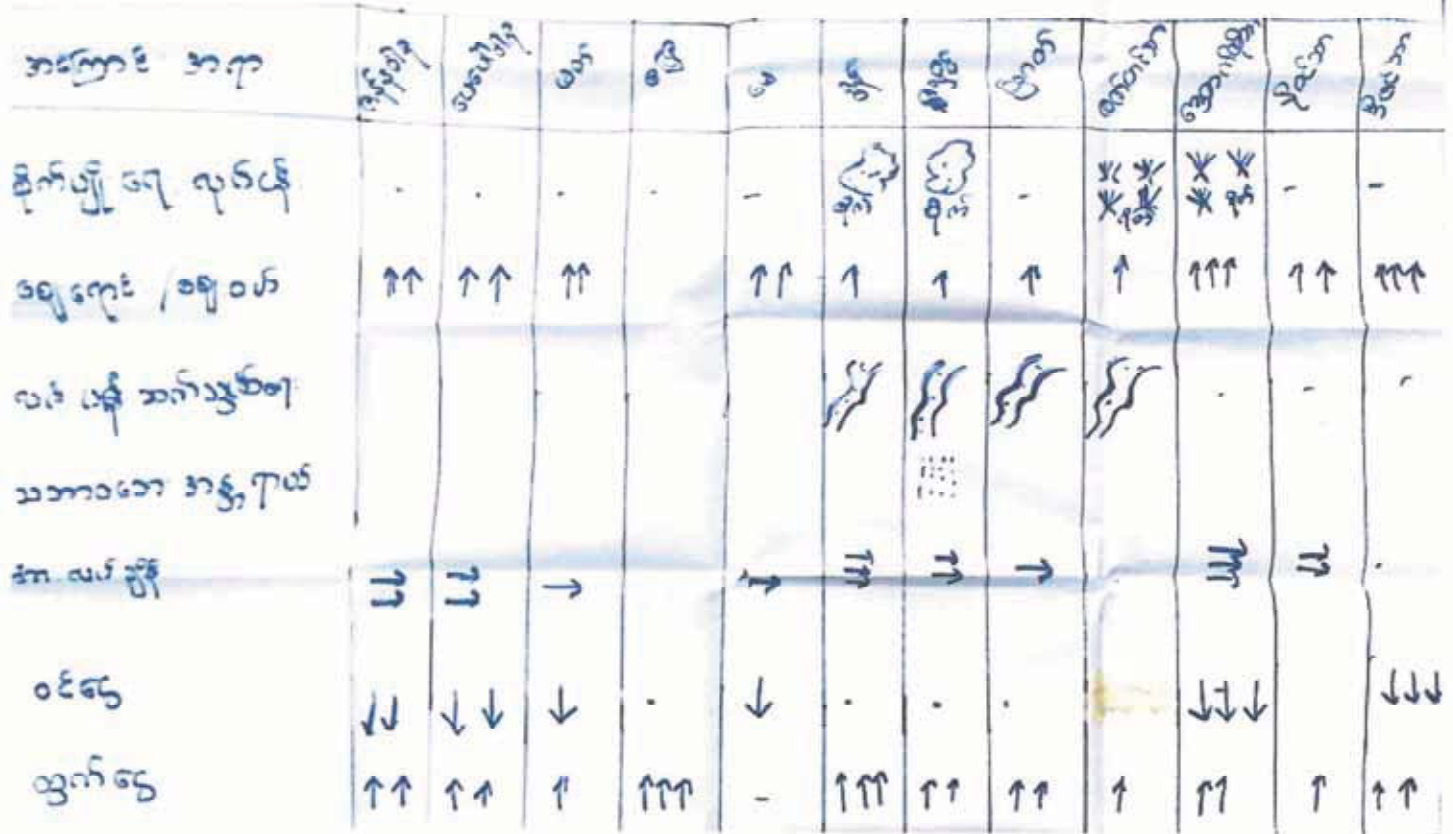 အကြောင်း အရာ ဇန်နဝါရီ ဖေဖော်ဝါရီ မတ် ဧပြီ မေ ဇွန် ဩဂုတ် စက်တင်ဘာ အောက်တိုဘာ နိုဝင်ဘာ ဒီဇင်ဘာ
စိုက်ပျိုး ရေး လုပ်ငန်း
စိုက် စိုက် ရိတ် ရိတ်
ဈေးရောင်း / ဈေးဝယ်
လမ်း ပန်း ဆက်သွယ်ရေး
သဘာဝဘေး အန္တရာယ်
အား လပ် ချိန်
ဝင်ငွေ
ထွက်ငွေ